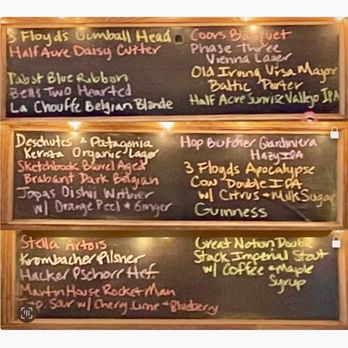 3 Floyds Gumball Head
Half Acre Daisy Cutter
Pabst Blue Ribbon
Bell's Two Hearted
La Chouffe Belgian Blonde
Coors Banquet
Phase Three
Vienna Lager
Old Irving Ursa Major
Baltic Porter
Half Acre Sunrise Vallejo IPA
Deschutes & Patagonia
Kernza Organic Lager
Sketchbook Barrel Aged
Brabant Dark Belgian
Jopas Oishii Witbier
w/ Orange Peel & Ginger
Hop Butcher Giardiniera
Hazy IPA
3 Floyds Apocalypse
Cow Double IPA
w/ Citrus & Milk Sugar
Guinness
Stella Artois
Krombacher Pilsner
Hacker Pschorr Hef
Martin House Rocket Man
Trop. Sour w/ Cherry, Lime & Blueberry
Great Notion Double
Stack Imperial Stout
w/ Coffee & Maple
Syrup